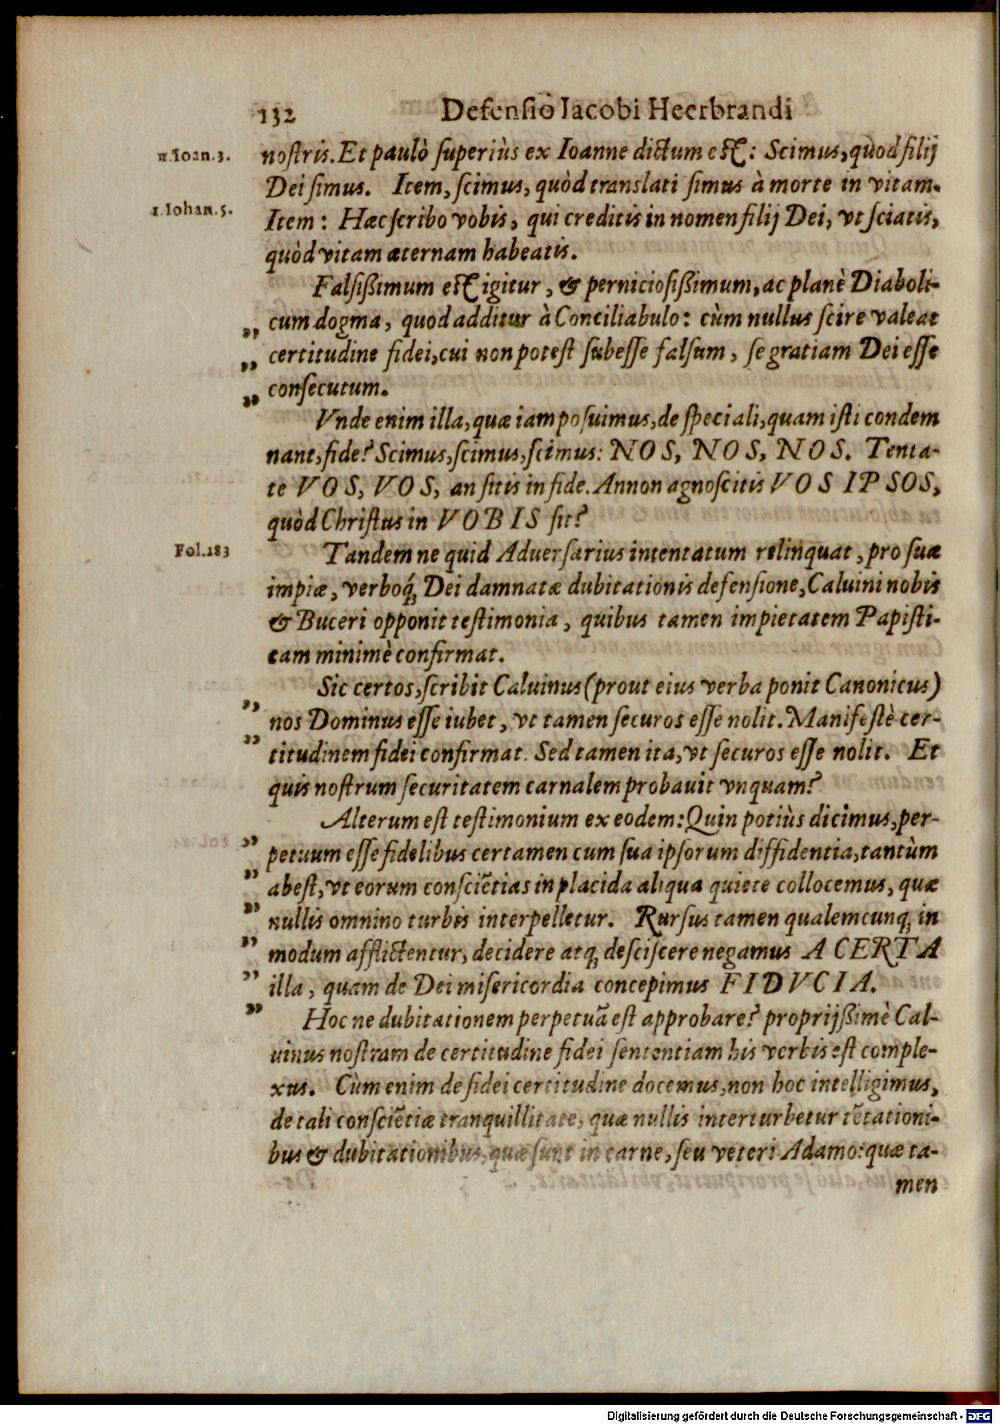 132 Defensio Iacobi Heerbrandi
1. Ioan. 3. nostris. Et paulò superiùs ex Ioanne dictum est: Scimus, quòd filij
Dei simus. Item, scimus, quòd translati simus à morte in vitam.
1. Iohan. 5. Item: Hæc scribo vobis, qui creditis in nomen filij Dei, vt sciatis,
quòd vitam æternam habeatis.
Falsißimum est igitur, & perniciosißimum, ac planè Diaboli-
„ cum dogma, quod additur à Conciliabulo: cùm nullus scire valeat
„ certitudine fidei, cui non potest subesse falsum, se gratiam Dei esse
„ consecutum.
Vnde enim illa, quæ iam posuimus, de speciali, quam isti condem
nant, fide? Scimus, scimus, scimus: NOS, NOS, NOS. Tenta-
te VOS, VOS, an sitis in fide. Annon agnoscitis VOS IPSOS,
quòd Christus in VOBIS sit?
Fol. 183 Tandem ne quid Aduersarius intentatum relinquat, pro suæ
impiæ, verboq́; Dei damnatæ dubitationis defensione, Caluini nobis
& Buceri opponit testimonia, quibus tamen impietatem Papisti-
cam minimè confirmat.
Sic certos, scribit Caluinus (prout eius verba ponit Canonicus)
„ nos Dominus esse iubet, vt tamen securos esse nolit. Manifestè cer-
„ titudinem fidei confirmat. Sed tamen ita, vt securos esse nolit. Et
quis nostrum securitatem carnalem probauit vnquam?
Alterum est testimonium ex eodem: Quin potiùs dicimus, per-
„ petuum esse fidelibus certamen cum sua ipsorum diffidentia, tantùm
„ abest, vt eorum consciẽtias in placida aliqua quiete collocemus, quæ
„ nullis omnino turbis interpelletur. Rursus tamen qualemcunq; in
„ modum afflictentur, decidere atq; desciscere negamus A CERTA
„ illa, quam de Dei misericordia concepimus FIDVCIA.
„ Hocne dubitationem perpetuã est approbare? proprijßimè Cal-
uinus nostram de certitudine fidei sententiam his verbis est comple-
xus. Cùm enim de fidei certitudine docemus, non hoc intelligimus,
de tali consciẽtiæ tranquillitate, quæ nullis interturbetur tẽtationi-
bus & dubitationibus, quæ sunt in carne, seu veteri Adamo: quæ ta-
men
Digitalisierung gefördert durch die Deutsche Forschungsgemeinschaft - DFG